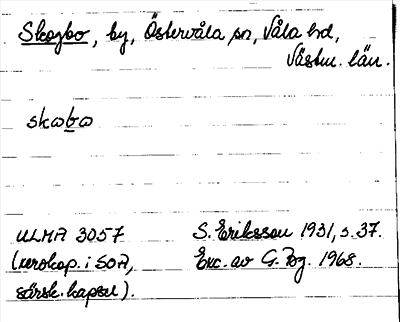 Skogbo, by, Östervåla sn, Våla hd,
Västm. län.
skωbω
ULMA 3057
(xerokop. i SOA,
särsk. kapsel).
S. Eriksson 1931, s. 37.
Exc. av G. Pog. 1968.